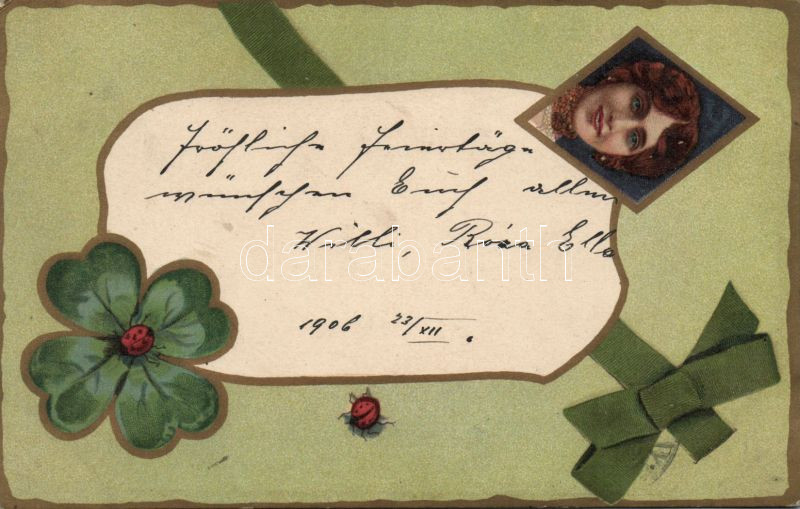 Fröhliche Feiertäge
wünschen Euch allen
Willi, Róza Ella
1906 23/XII.
darabanth